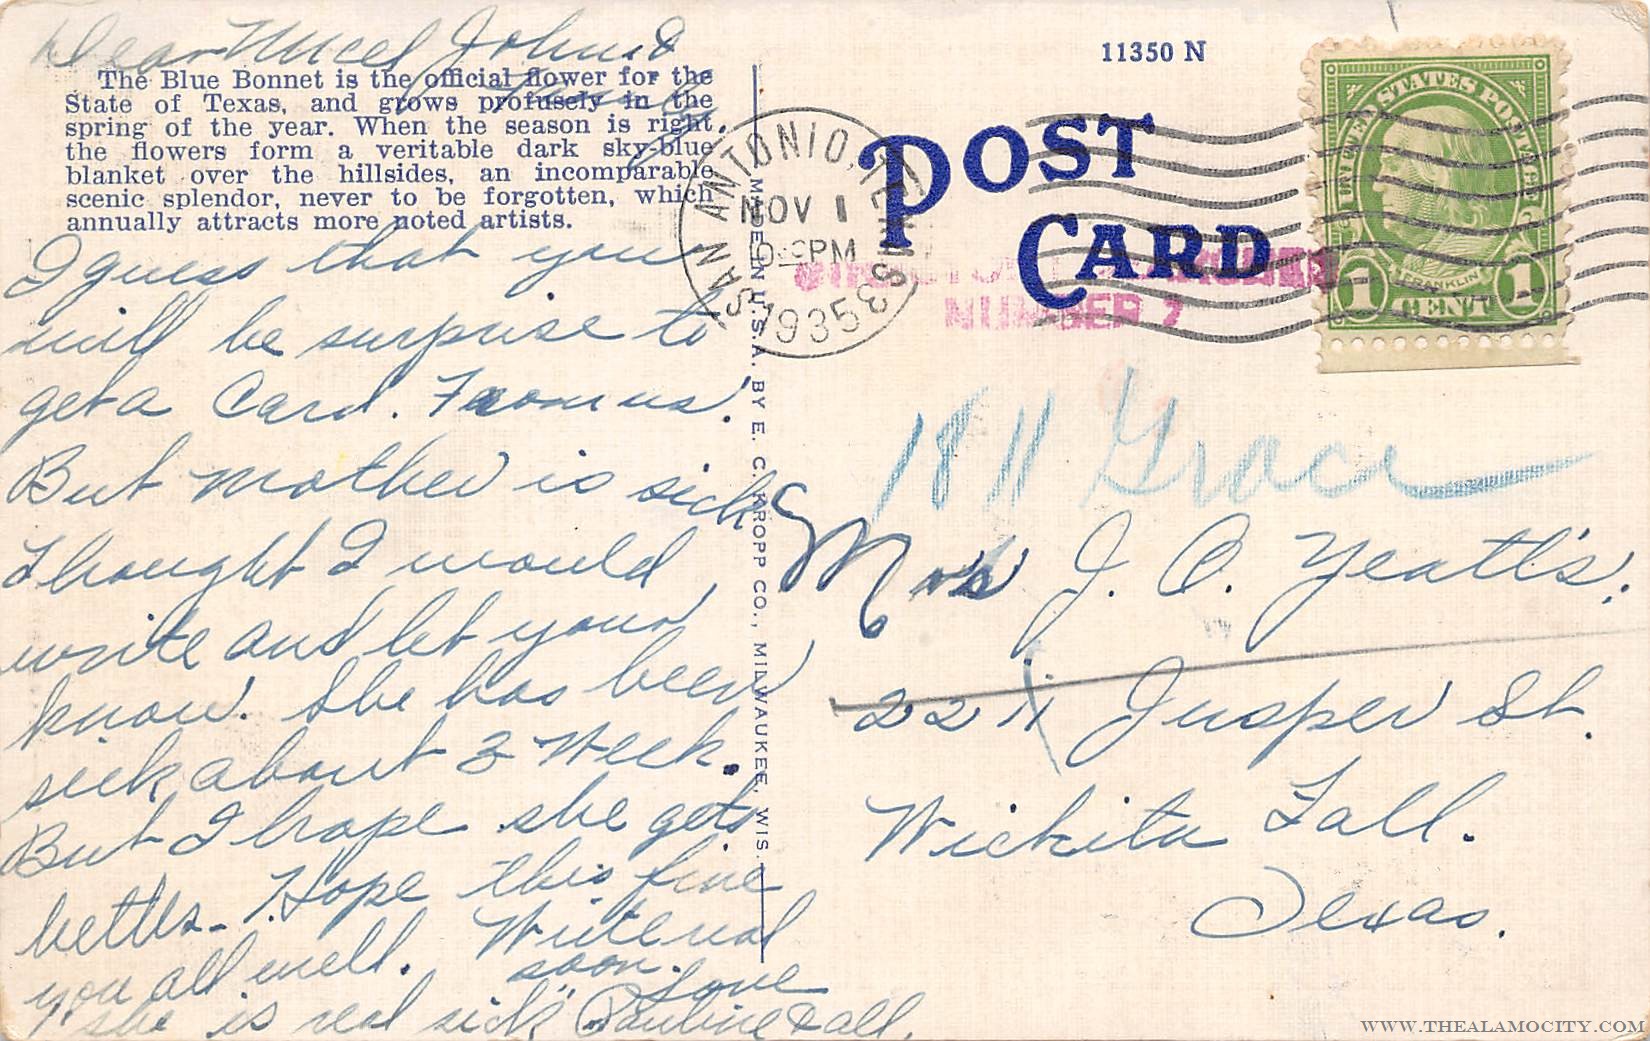 Dear Uncel John &
Family
The Blue Bonnet is the official flower for the
State of Texas, and grows profusely in the
spring of the year. When the season is right,
the flowers form a veritable dark sky-blue
blanket over the hillsides, an incomparable
scenic splendor, never to be forgotten, which
annually attracts more noted artists.
I guess that you
will be surprise to
get a Card. From us.
But mother is sick
Thought I would
write and let your
know. She has been
sick about 3 Week.
But I hope she gets
better. Hope this fine
you all well. Write real
soon. Love
Pauline & all.
"she is real sick"
MADE IN U.S.A. BY E. C. KROPP CO., MILWAUKEE, WIS.
11350 N
POST
CARD
SAN ANTONIO, TEX
NOV 1
PM
1935
NUMBER 7
UNITED STATES POSTAGE
FRANKLIN
1 CENT 1
1811 Grace
Mrs J. C. Yeatt's.
2211 Jusper St.
Wichita Fall.
Texas.
WWW.THEALAMOCITY.COM